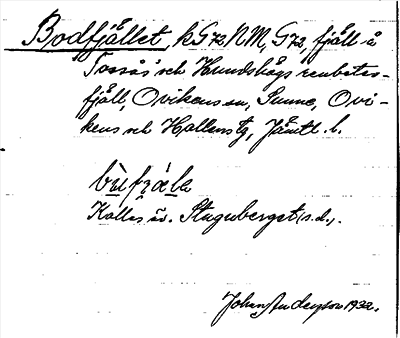 Bodfjället, k G72 NM, G72, fjäll å
Tossås' och Hundshögs renbetes-
fjäll, Ovikens sn, Sunne, Ovi-
kens och Hallens tg, Jämtl. l.
bù fjǽla
Kallas äv. Stuguberget (s.d.).
Johan Anderson 1932.